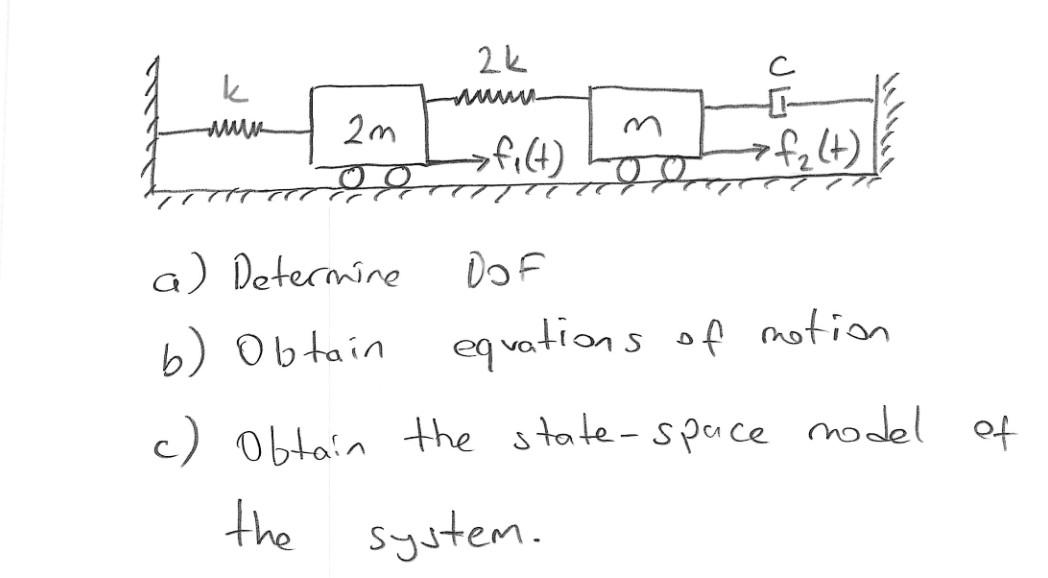 k
2m
2k
f₁(t)
m
c
f₂(t)
a) Determine DoF
b) Obtain equations of motion
c) Obtain the state-space model of
the system.